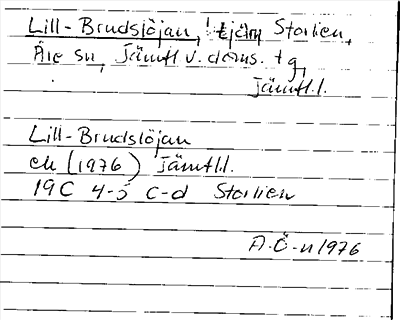 Lill-Brudsjöjan, tjärn, Storlien,
Åre sn, Jämtl v. doms. tg,
Jämtl.l.
Lill-Brudslöjan
ek (1976) Jämtl.l.
19C 4-5 c-d Storlien
A.Ö-n 1976